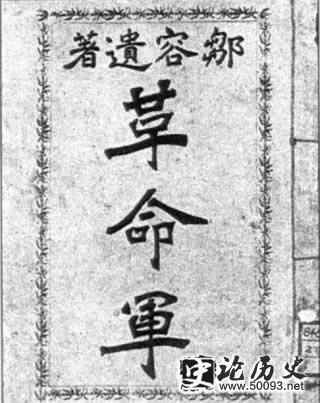 鄒容遺著
革命軍
史论历史
www.50093.net